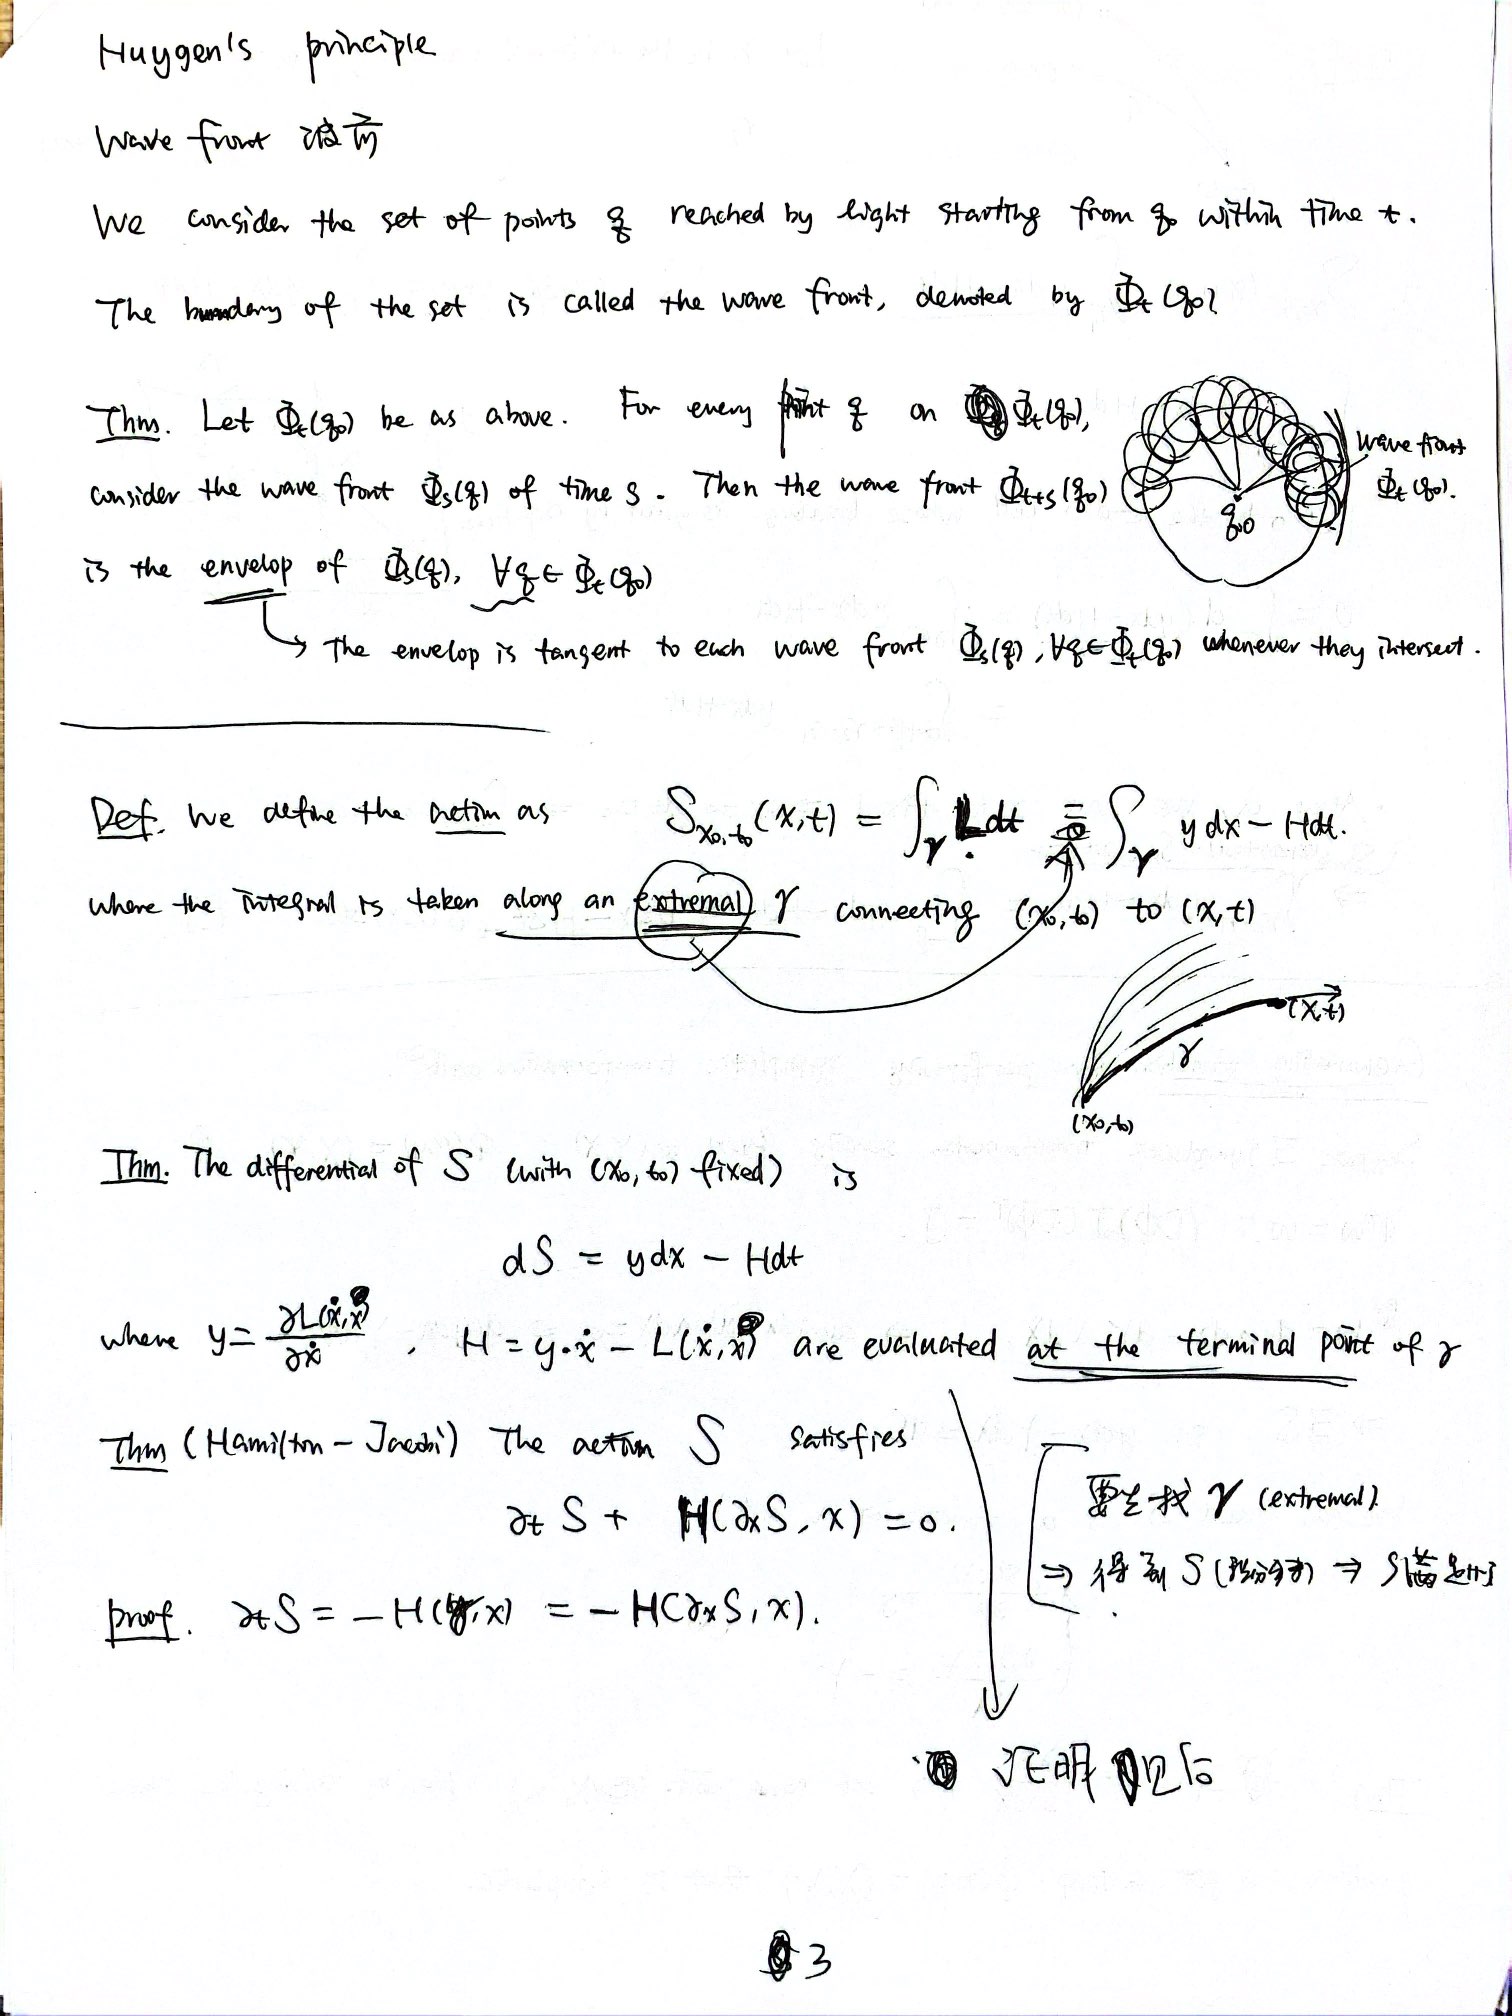 Huygen's principle
Wave front 波前
We consider the set of points q reached by light starting from q₀ within time t.
The boundary of the set is called the wave front, denoted by Φₜ(q₀)
Thm. Let Φₜ(q₀) be as above. For every point q on Φₜ(q₀),
consider the wave front Φₛ(q) of time s. Then the wave front Φₜ₊ₛ(q₀)
is the envelop of Φₛ(q), ∀q ∈ Φₜ(q₀)
wave front
Φₜ(q₀).
q₀
→ The envelop is tangent to each wave front Φₛ(q), ∀q ∈ Φₜ(q₀) whenever they intersect.
Def. We define the action as S_{x₀,t₀}(x,t) = ∫_γ L dt = ∫_γ y dx − H dt.
where the integral is taken along an extremal γ connecting (x₀,t₀) to (x,t)
(x,t)
γ
(x₀,t₀)
Thm. The differential of S (with (x₀,t₀) fixed) is
dS = y dx − H dt
where y = ∂L(ẋ,x)/∂ẋ, H = y·ẋ − L(ẋ,x) are evaluated at the terminal point of γ
Thm (Hamilton-Jacobi) The action S satisfies
∂t S + H(∂x S, x) = 0.
proof. ∂t S = −H(y,x) = −H(∂x S, x).
要先找 γ (extremal)
⇒ 得到 S ⇒ S满足H-J
证明见后
3